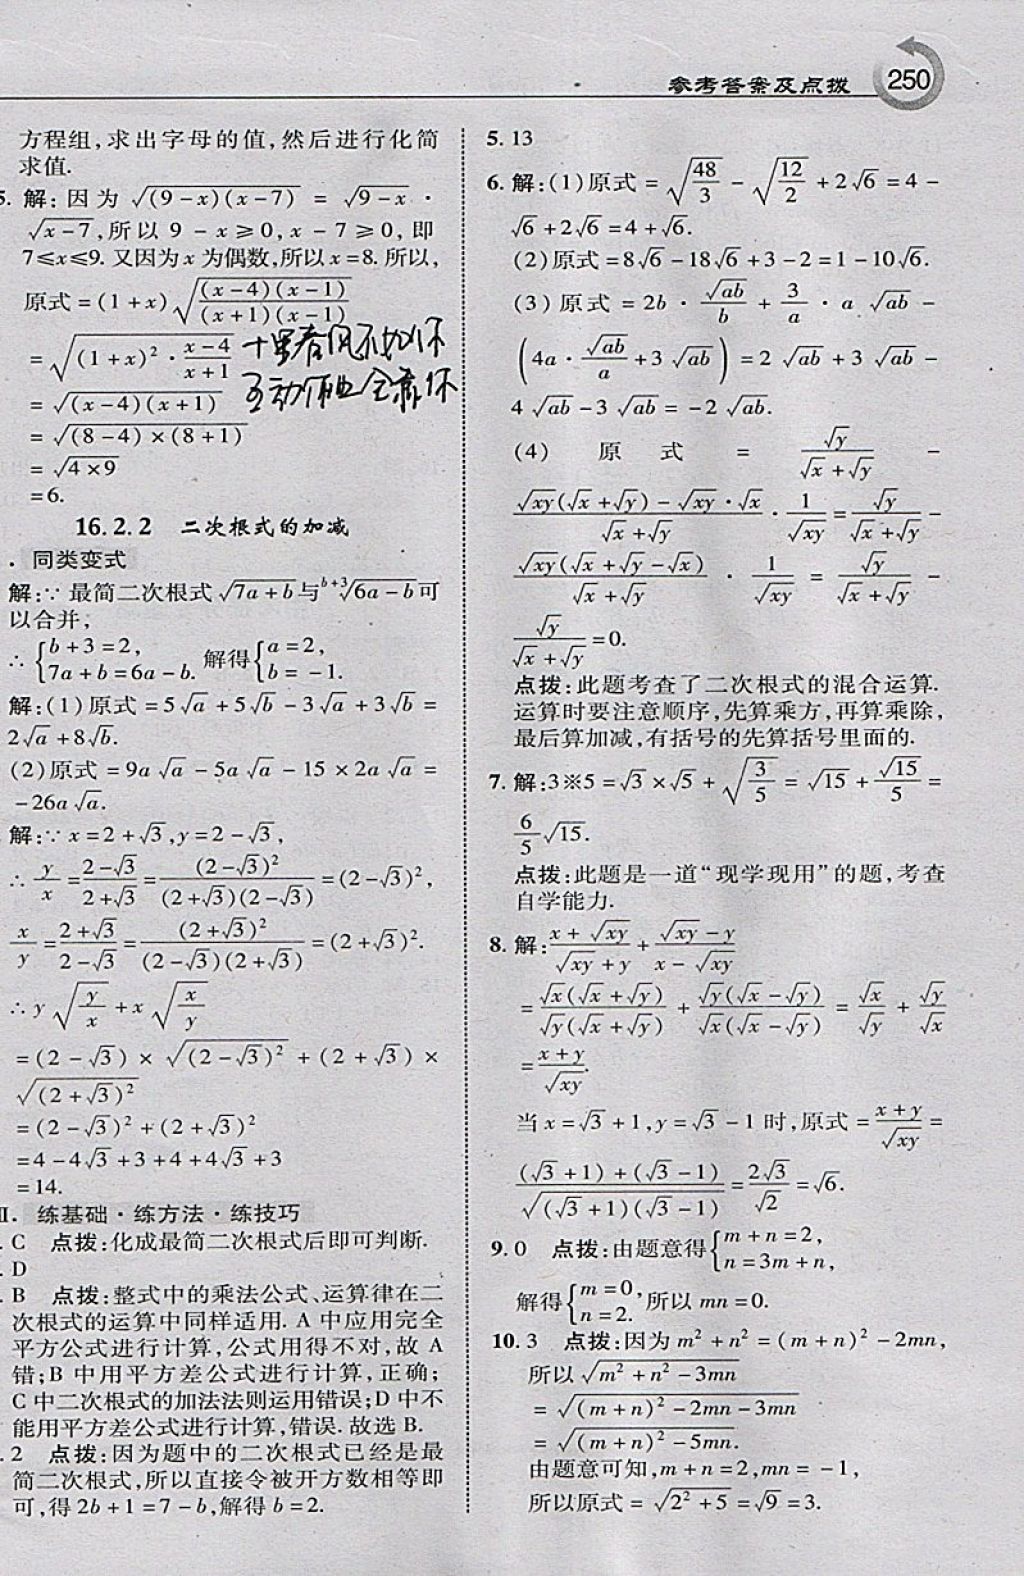 参考答案及点拨 250
方程组,求出字母的值,然后进行化简
求值.
5. 解:因为 √((9-x)(x-7)) = √(9-x) ·
√(x-7),所以 9-x≥0,x-7≥0,即
7≤x≤9.又因为x为偶数,所以x=8.所以,
原式=(1+x)√((x-4)(x-1)/((x+1)(x-1)))
=√((1+x)²·(x-4)/(x+1))
=√((x-4)(x+1))
=√((8-4)×(8+1))
=√(4×9)
=6.
16.2.2 二次根式的加减
. 同类变式
解:∵最简二次根式√(7a+b)与ᵇ⁺³√(6a-b)可
以合并;
∴{b+3=2, 7a+b=6a-b. 解得{a=2, b=-1.
解:(1)原式=5√a+5√b-3√a+3√b=
2√a+8√b.
(2)原式=9a√a-5a√a-15×2a√a=
-26a√a.
解:∵x=2+√3,y=2-√3,
∴y/x=(2-√3)/(2+√3)=(2-√3)²/((2+√3)(2-√3))=(2-√3)²,
x/y=(2+√3)/(2-√3)=(2+√3)²/((2-√3)(2+√3))=(2+√3)².
∴y√(y/x)+x√(x/y)
=(2-√3)×√((2-√3)²)+(2+√3)×
√((2+√3)²)
=(2-√3)²+(2+√3)²
=4-4√3+3+4+4√3+3
=14.
Ⅱ. 练基础·练方法·练技巧
. C 点拨:化成最简二次根式后即可判断.
. D
. B 点拨:整式中的乘法公式、运算律在二
次根式的运算中同样适用. A中应用完全
平方公式进行计算,公式用得不对,故A
错;B中用平方差公式进行计算,正确;
C中二次根式的加法法则运用错误;D中不
能用平方差公式进行计算,错误.故选B.
. 2 点拨:因为题中的二次根式已经是最
简二次根式,所以直接令被开方数相等即
可,得2b+1=7-b,解得b=2.
5. 13
6. 解:(1)原式=√(48/3)-√(12/2)+2√6=4-
√6+2√6=4+√6.
(2)原式=8√6-18√6+3-2=1-10√6.
(3)原式=2b·√ab/b+3/a·a√ab-
(4a·√ab/a+3√ab)=2√ab+3√ab-
4√ab-3√ab=-2√ab.
(4) 原式=√y/(√x+√y)-
(√xy(√x+√y)-√xy·√x)/(√x+√y)·1/√xy=√y/(√x+√y)-
√xy(√x+√y-√x)/(√x+√y)·1/√xy=√y/(√x+√y)-
√y/(√x+√y)=0.
点拨:此题考查了二次根式的混合运算.
运算时要注意顺序,先算乘方,再算乘除,
最后算加减,有括号的先算括号里面的.
7. 解:3※5=√3×√5+√(3/5)=√15+√15/5=
6/5√15.
点拨:此题是一道“现学现用”的题,考查
自学能力.
8. 解:(x+√xy)/(√xy+y)+(√xy-y)/(x-√xy)
=√x(√x+√y)/(√y(√x+√y))+√y(√x-√y)/(√x(√x-√y))=√x/√y+√y/√x
=(x+y)/√xy.
当x=√3+1,y=√3-1时,原式=(x+y)/√xy=
((√3+1)+(√3-1))/√((√3+1)(√3-1))=2√3/√2=√6.
9. 0 点拨:由题意得{m+n=2, n=3m+n,
解得{m=0, n=2. 所以mn=0.
10. 3 点拨:因为m²+n²=(m+n)²-2mn,
所以√(m²+n²-3mn)
=√((m+n)²-2mn-3mn)
=√((m+n)²-5mn).
由题意可知,m+n=2,mn=-1,
所以原式=√(2²+5)=√9=3.